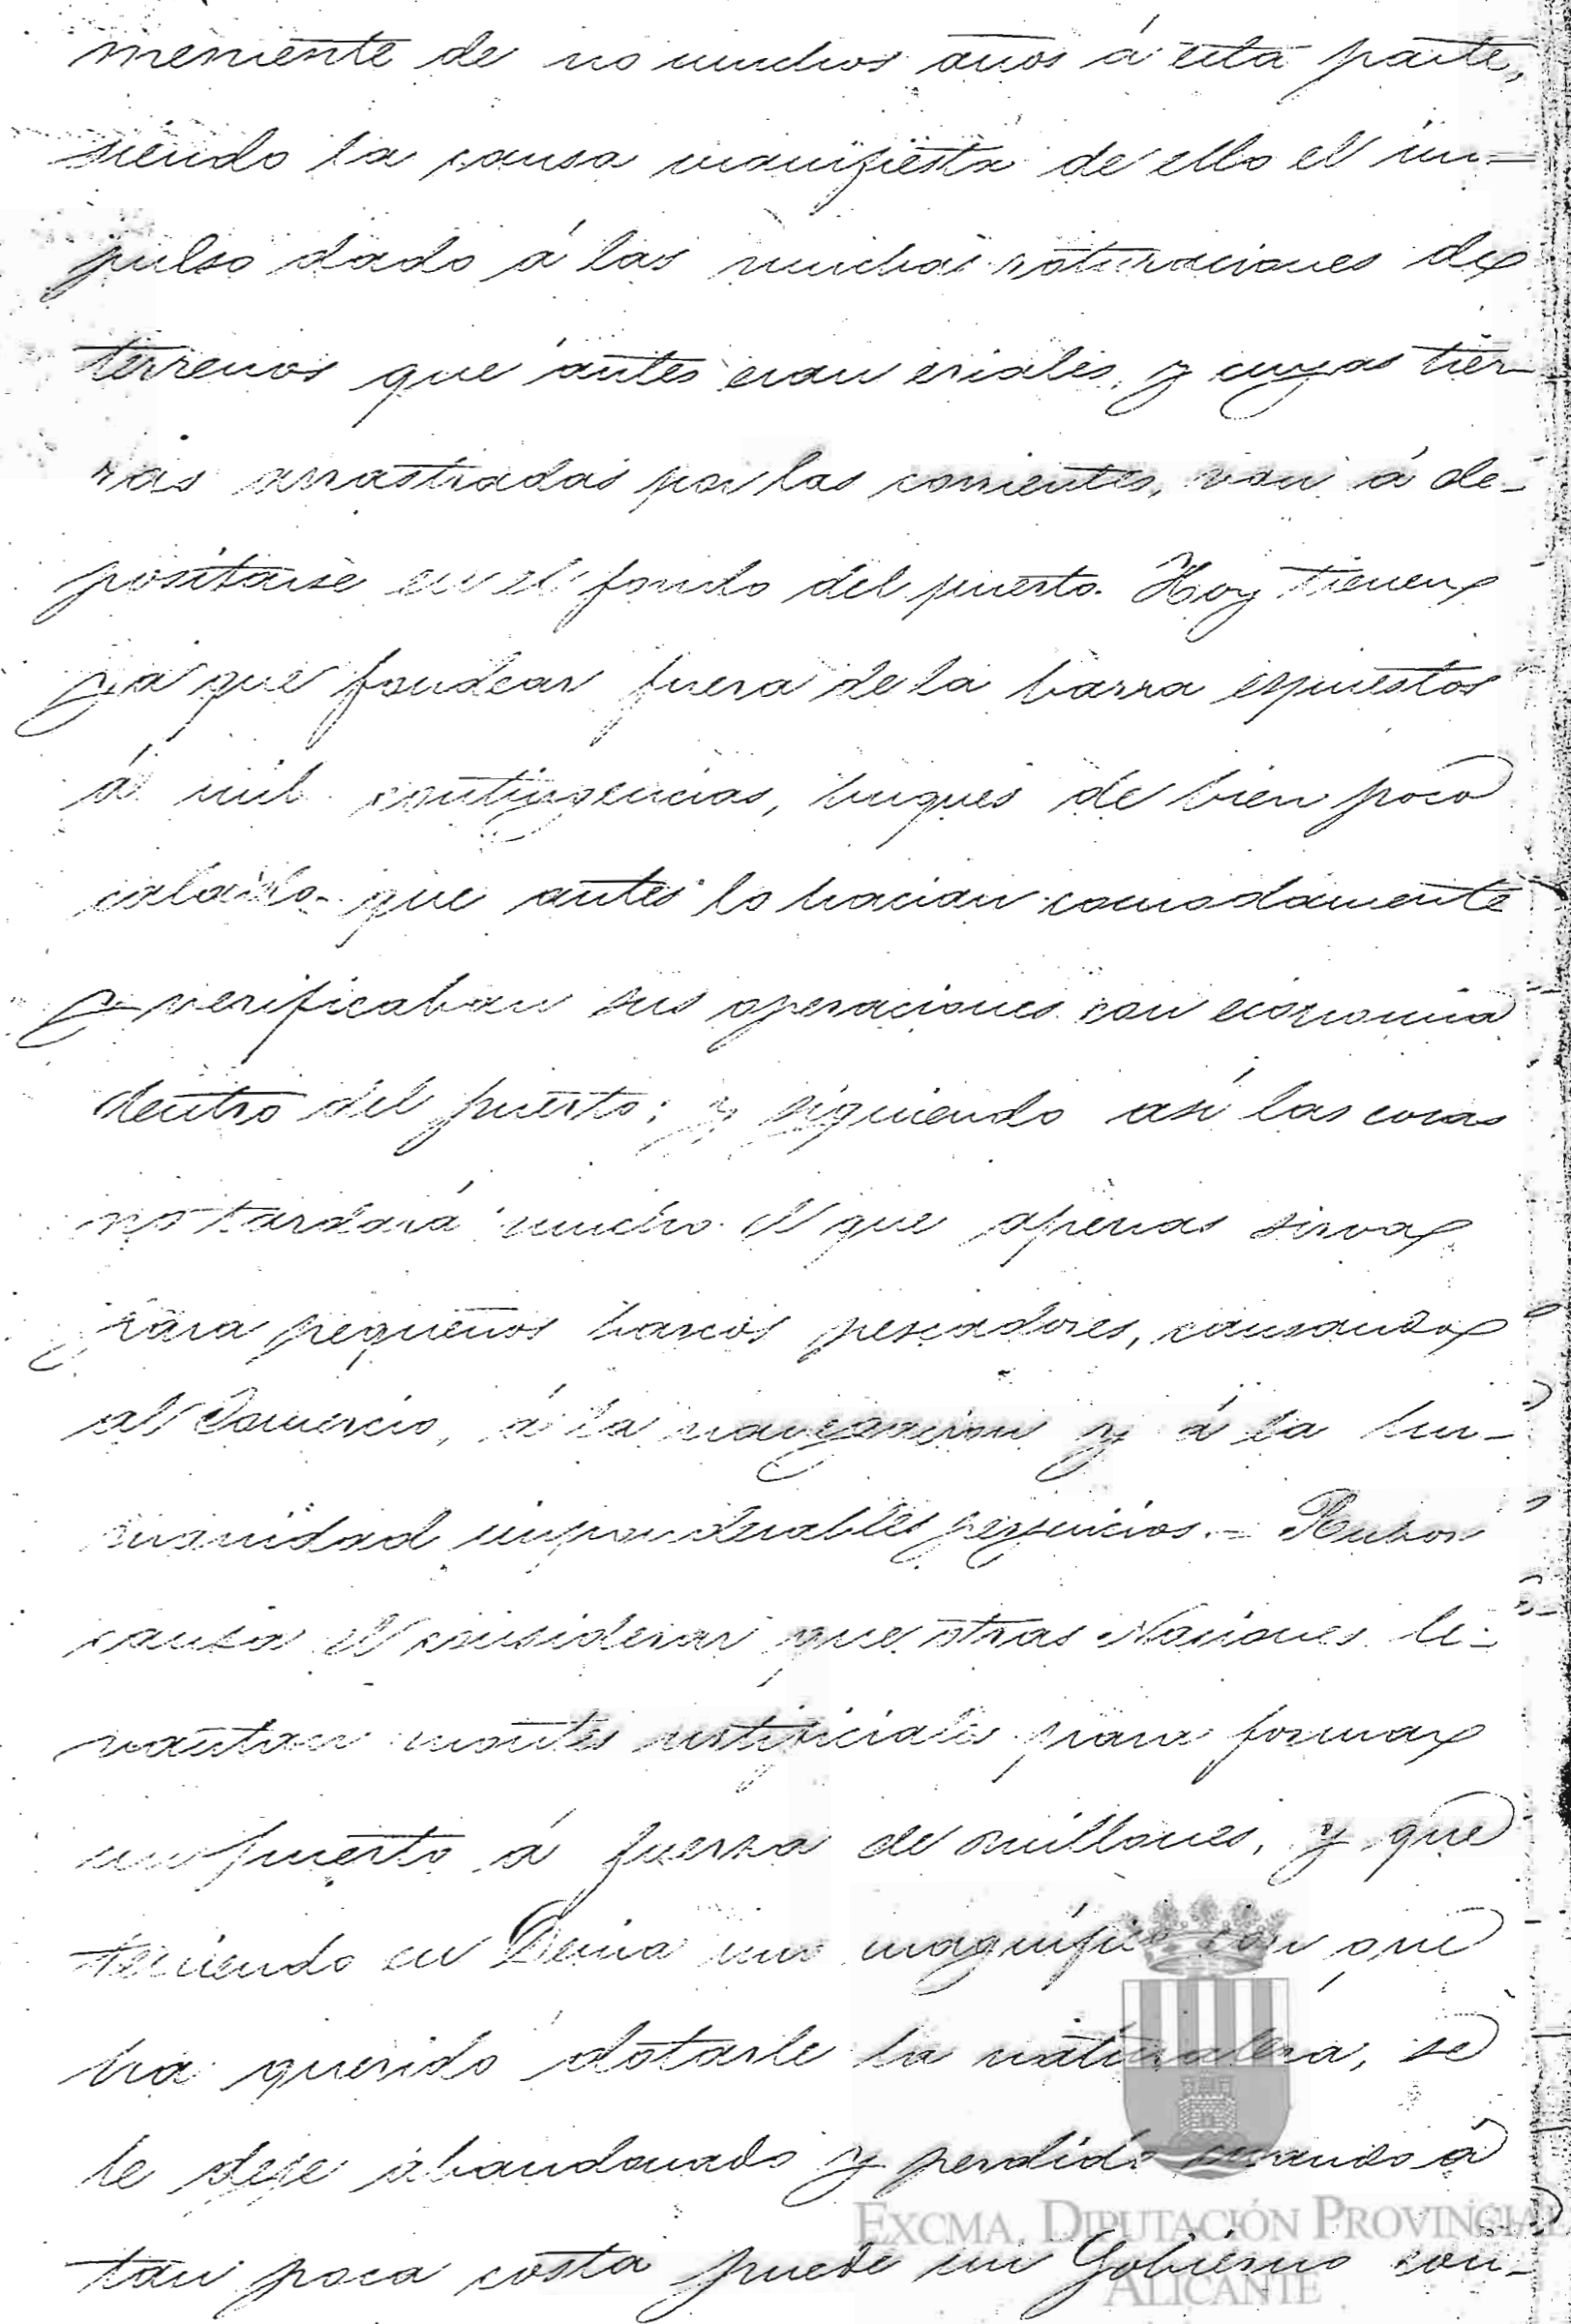 memente de no muchos años á esta parte,
siendo la causa manifiesta de ello el im=
pulso dado á las muchas roturaciones de
terrenos que antes eran eriales, y cuyas tier-
ras arrastradas por las corrientes, van á de-
positarse en el fondo del puerto. Hoy tienen
ya que fondear fuera de la barra espuestos
á mil contingencias, buques de bien poco
calado que antes lo hacian comodamente
y verificaban sus operaciones con economia
dentro del puerto; y siguiendo asi las cosas
no tardará mucho el que apenas sirva
para pequeños barcos pescadores, causando
al Comercio, á la navegacion y á la hu-
manidad imponderables perjuicios.- Rubor
causa el considerar que otras Naciones le-
vantan montes artificiales para formar
un puerto á fuerza de millones, y que
teniendo en Denia uno magnifico con que
ha querido dotarle la naturaleza, se
le deje abandonado y perdido cuando á
tan poca costa puede un Gobierno con-
EXCMA. DIPUTACIÓN PROVINCIAL
ALICANTE